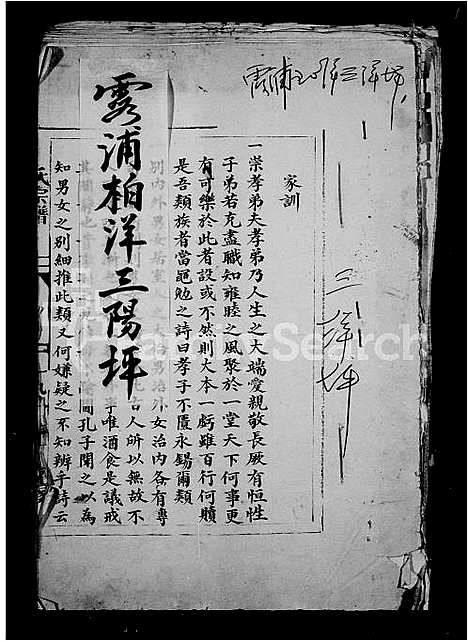 霞浦柏洋三陽坪
霞浦
三洋坪
家訓
一崇孝弟夫孝弟乃人生之大端愛親敬長厥有恒性
子弟若克盡職知雍睦之風聚於一堂天下何事更
有可樂於此者設或不然則大本一虧雖百行何贖
是吾類族者當黽勉之詩曰孝子不匱永錫爾類
別內外男女居室人之大 男治外女治內各有專
言人所以無故不
事唯酒食是議戒
間孔子聞之以為
知男女之別細推此類又何嫌疑之不知辨乎詩云
氏宗譜
FamilySearch